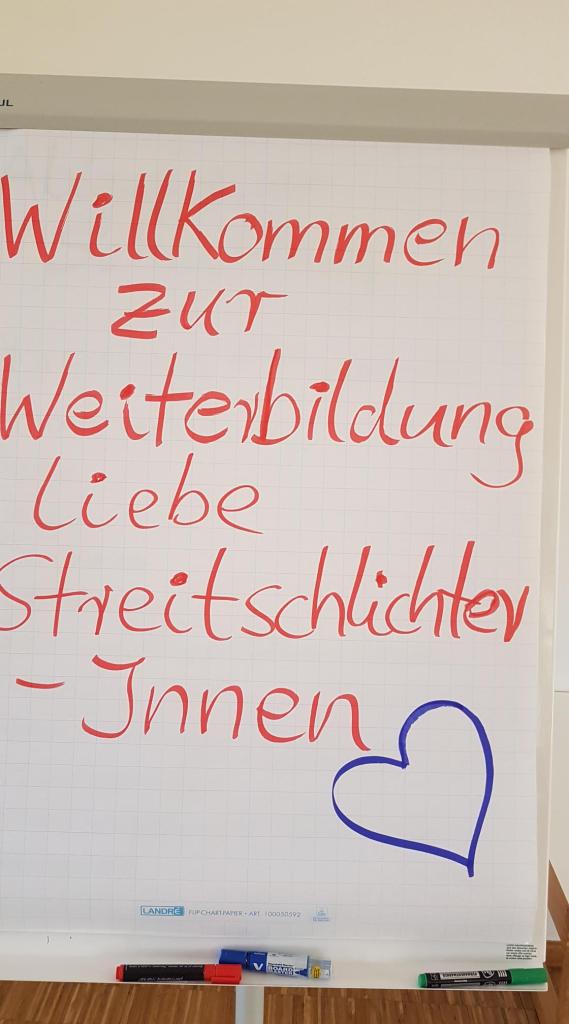 UL
Willkommen
zur
Weiterbildung
liebe
Streitschlichter
- Innen
LANDRÉ FLIP-CHART-PAPIER • ART. 100050592
V BOARD MASTER